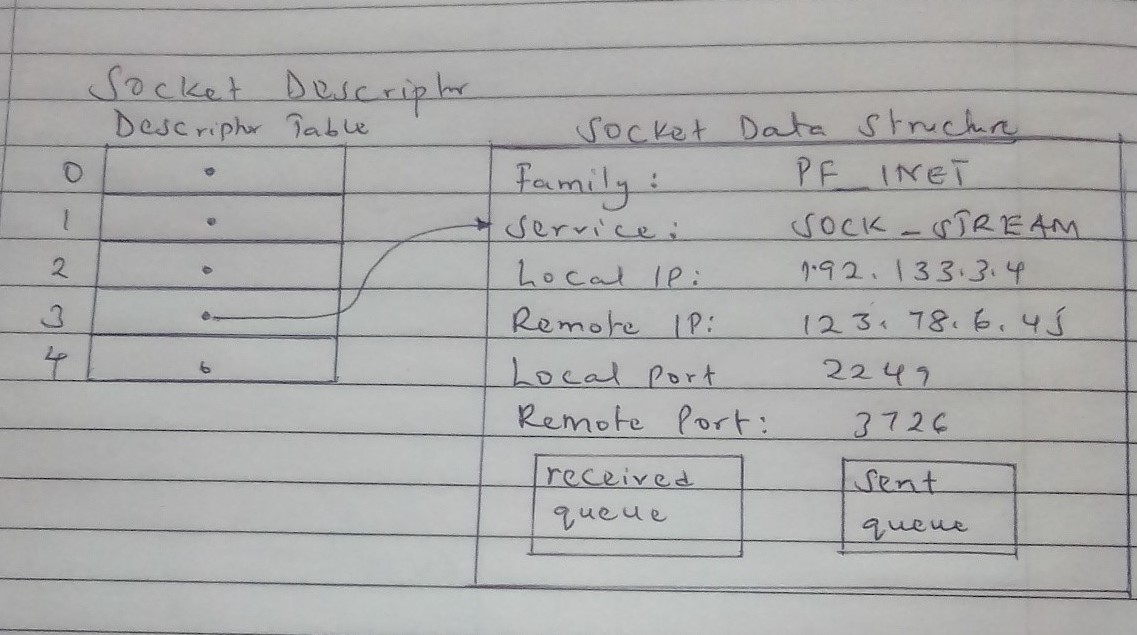 Socket Descriptor
Descriptor Table
Socket Data Structure
0
Family: PF_INET
1
Service: SOCK_STREAM
2
Local IP: 192.133.3.4
3
Remote IP: 123.78.6.45
4
Local Port 2249
Remote Port: 3726
received
queue
Sent
queue